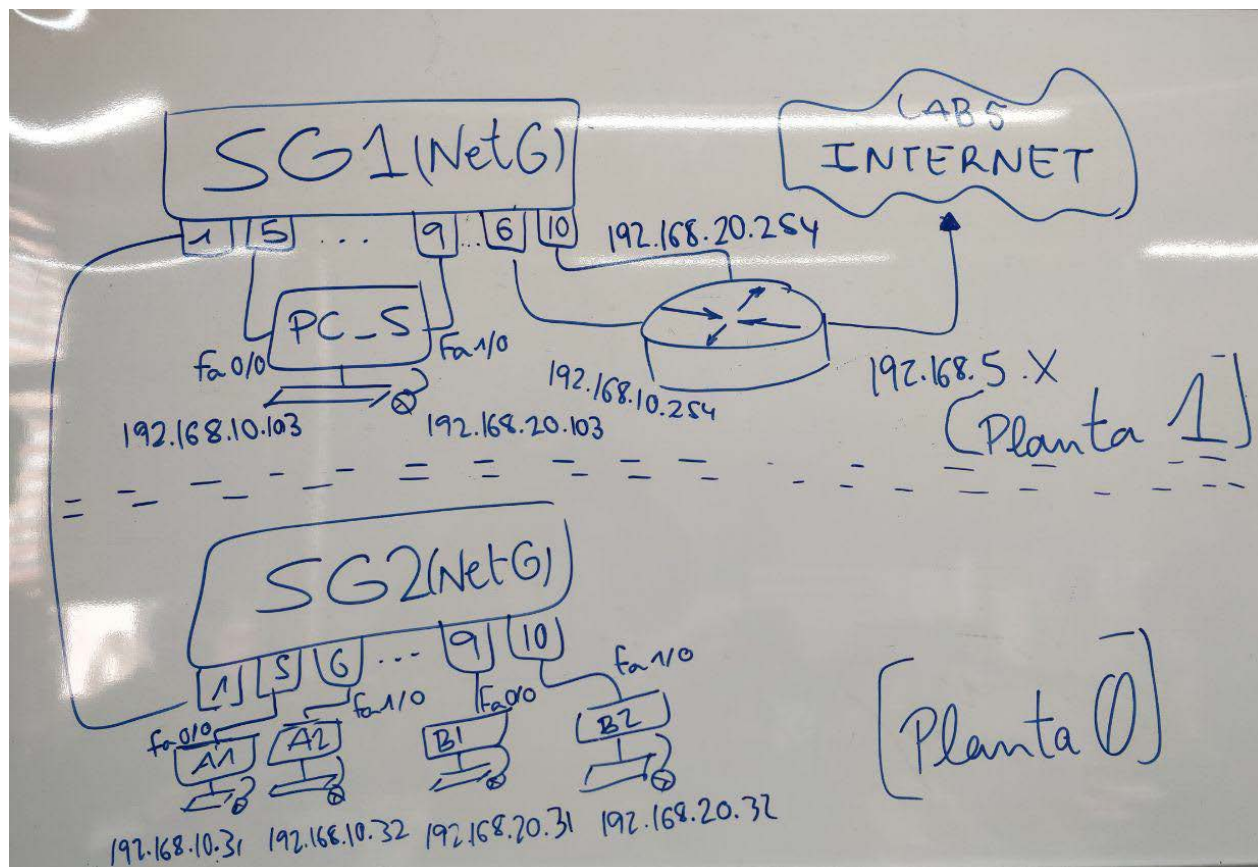 SG1(NetG)
LAB5
INTERNET
1 5 ... 9 .. 6 10
192.168.20.254
PC_S
Fa0/0
Fa1/0
192.168.10.103
192.168.20.103
192.168.10.254
192.168.5.X
[Planta 1]
SG2(NetG)
1 5 6 ... 9 10
Fa0/0
Fa1/0
Fa0/0
Fa1/0
A1
A2
B1
B2
192.168.10.31
192.168.10.32
192.168.20.31
192.168.20.32
[Planta 0]